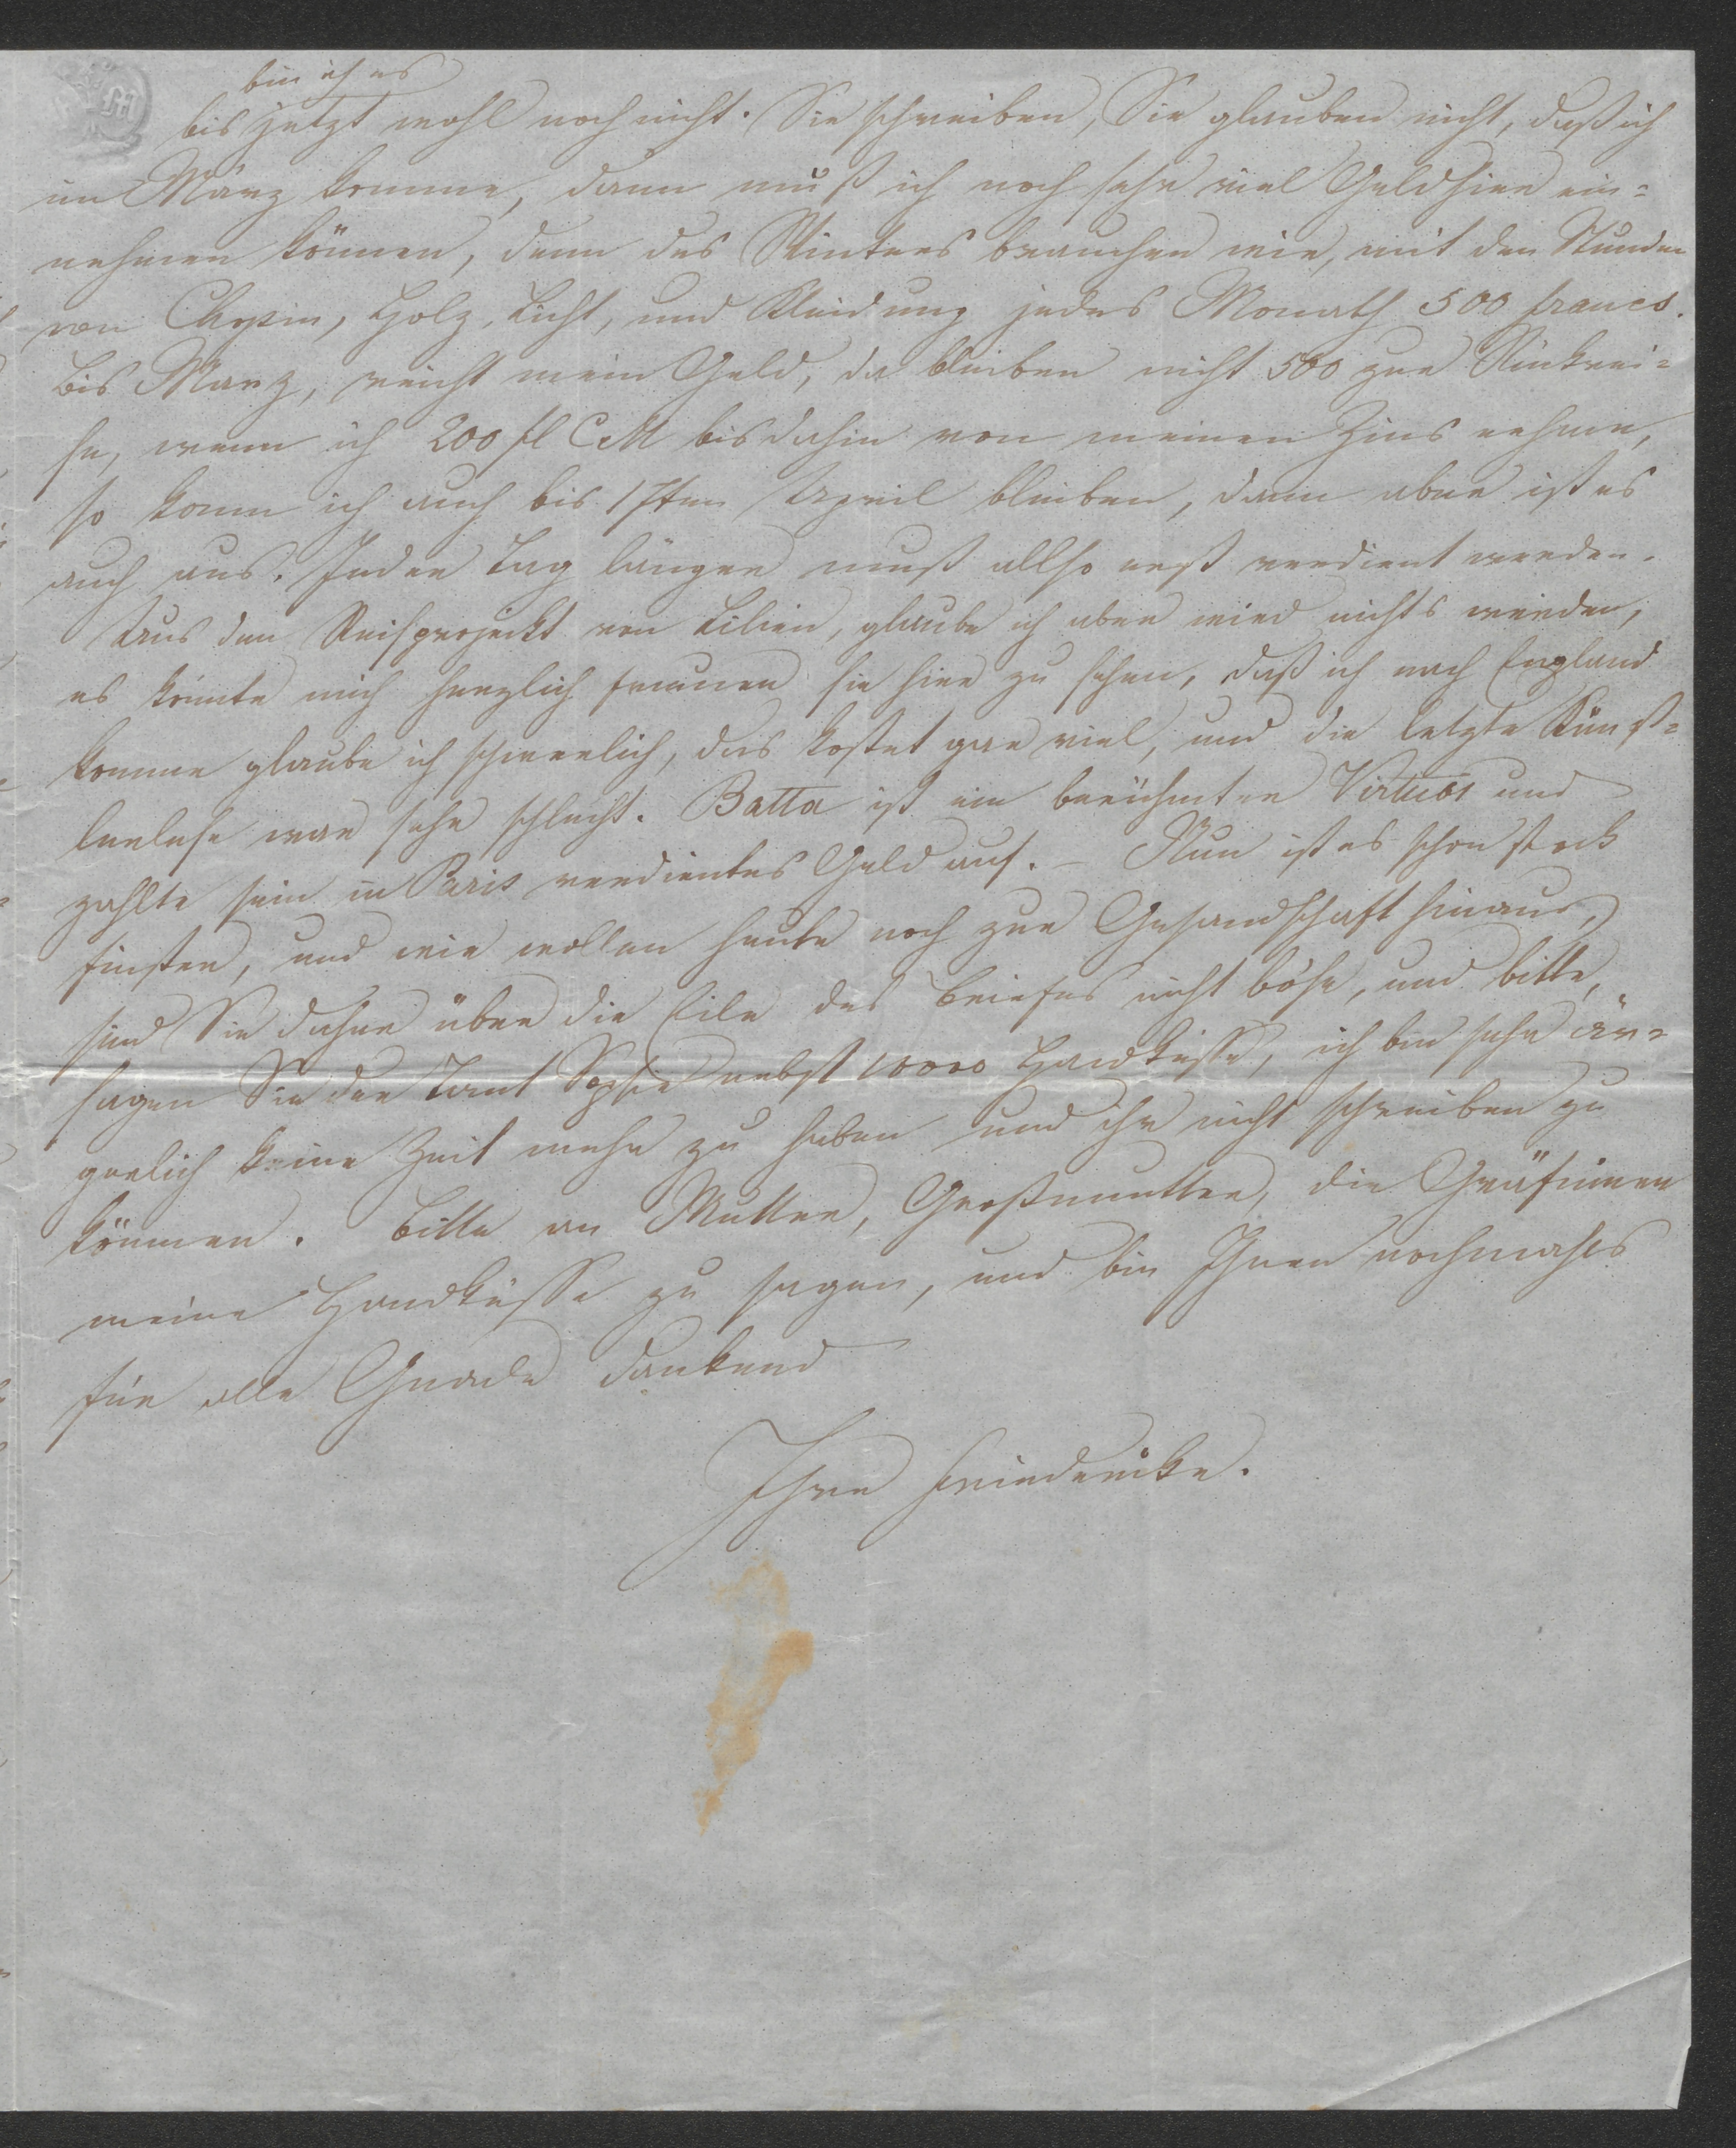 bin ich es
bis jetzt wohl noch nicht. Sie schreiben, Sie glauben nicht, daß ich
im März komme, dann muß ich noch sehr viel Geld hier ein=
nehmen können, denn des Winters brauchen wir, mit den Stunden
von Chopin, Holz, Licht, und Kleidung jedes Monath 500 francs.
Bis März, reicht mein Geld, da bleiben nicht 500 zur Rükrei=
se, wenn ich 200 fl CM bis dahin von meinen Zins nehme,
so kann ich auch bis 17ten April bleiben, dann aber ist es
auch aus. Jeder Tag länger muß allso erst verdient werden.
Aus den Reisprojeckt von Lilien, glaube ich aber wird nichts werden,
es könnte mich herzlich freuen sie hier zu sehen, daß ich nach England
komme glaube ich schwerlich, das kostet gar viel, und die letzte Künst=
lerlese war sehr schlecht. Batta ist ein berühmter Virtuos und
zahlte sein in Paris verdientes Geld auf. – Nun ist es schon stock
finster, und wir wollen heute noch zur Gesandschaft hinaus,
sind Sie daher über die Eile des Briefes nicht böse, und bitte,
sagen Sie der Tant Sophie nebst 10000 Handküsse, ich bin sehr är=
gerlich keine Zeit mehr zu haben und ihr nicht schreiben zu
können. Bitte an Mutter, Großmutter, die Gräfinnen
meine Handküsse zu sagen, und bin Ihnen nochmahls
für alle Gnade dankend
Ihre Friederike.